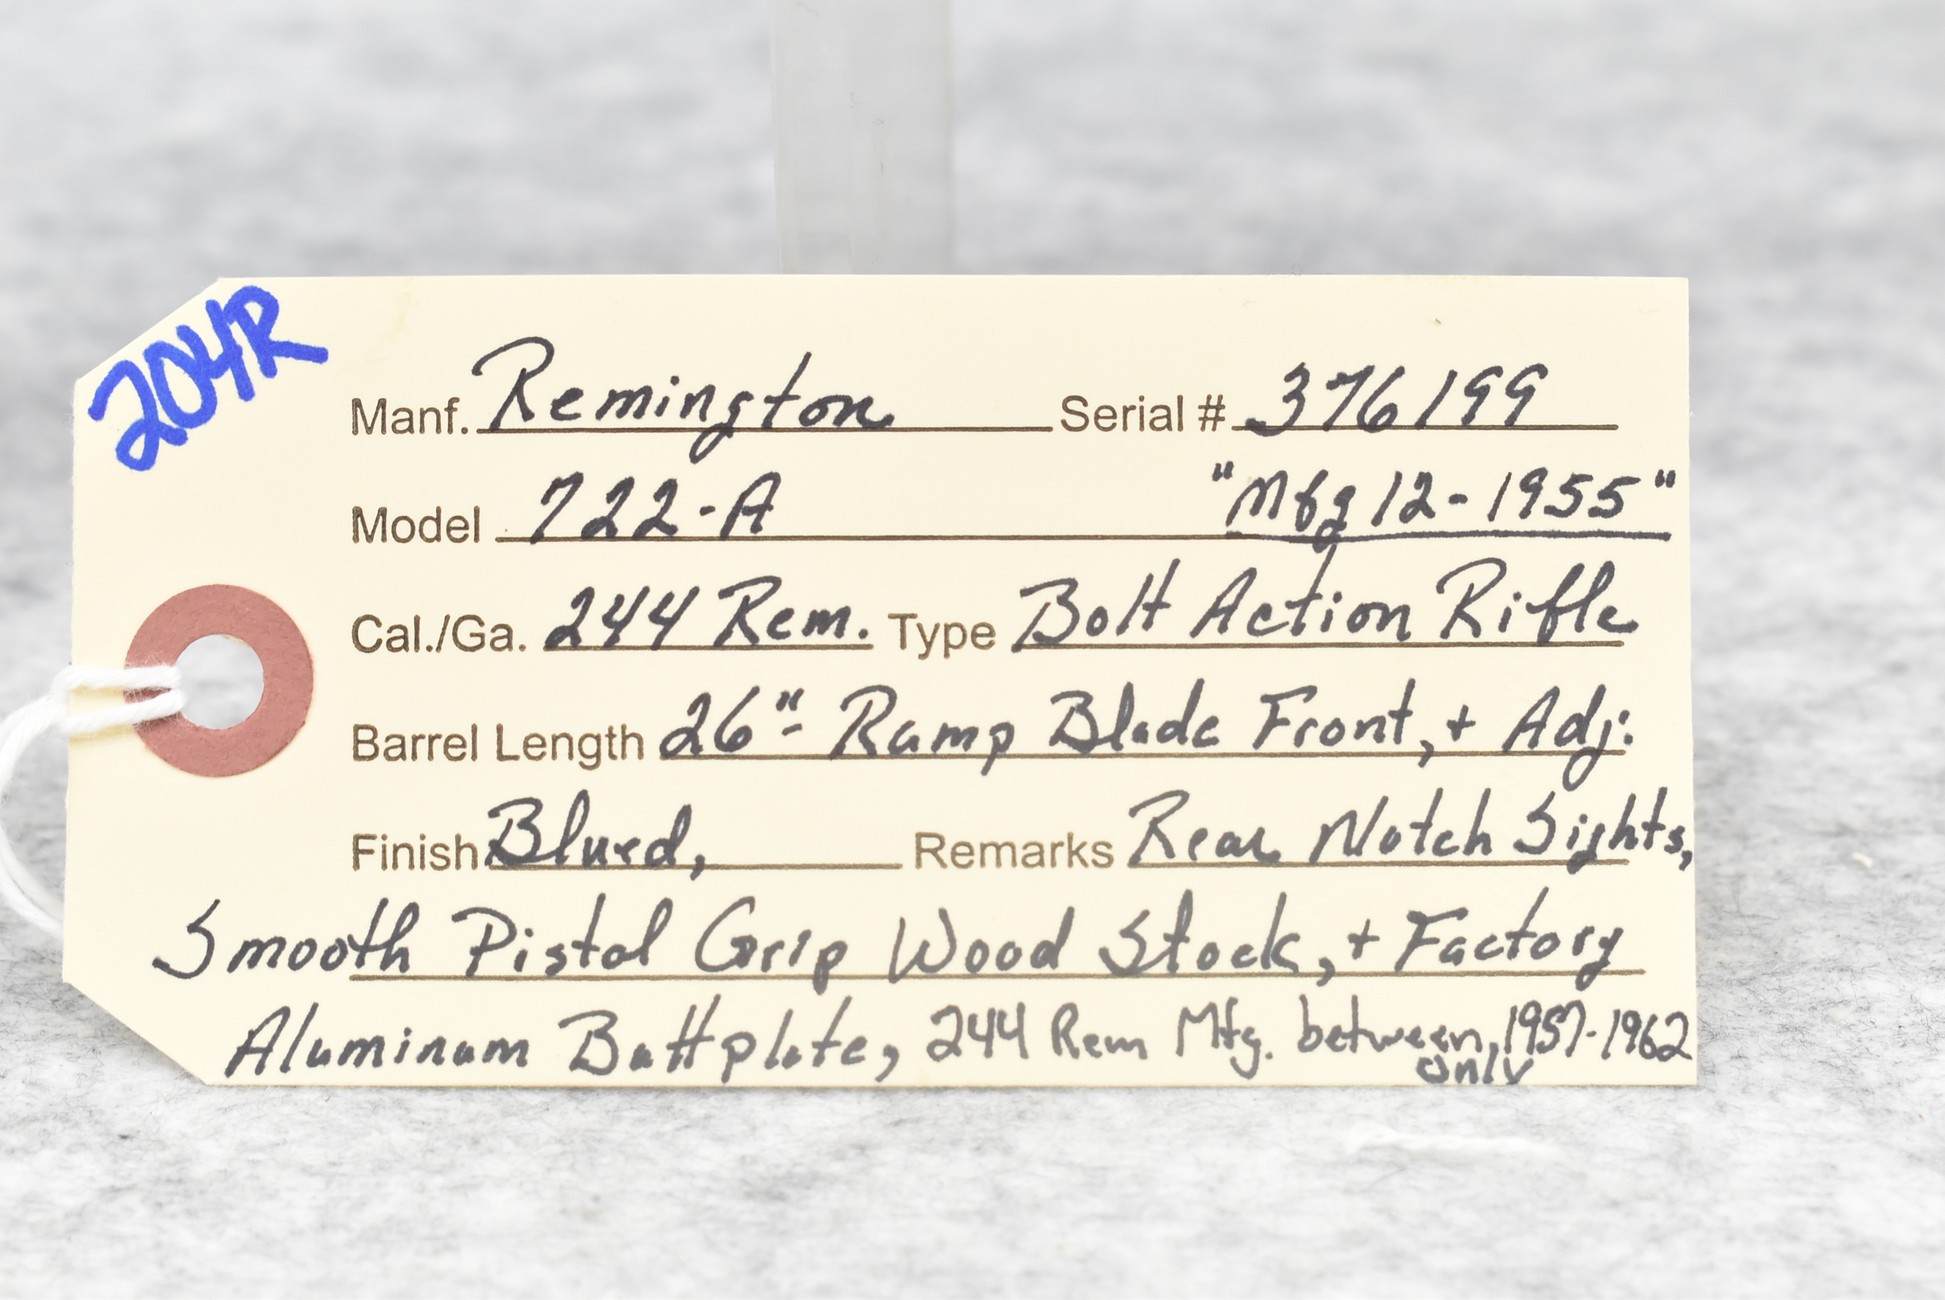 204R
Manf. Remington Serial # 376199
Model 722-A "Mfg 12-1955"
Cal./Ga. 244 Rem. Type Bolt Action Rifle
Barrel Length 26"- Ramp Blade Front, + Adj.
Finish Blued, Remarks Rear Notch Sights,
Smooth Pistol Grip Wood Stock, + Factory
Aluminum Buttplate, 244 Rem Mfg. between 1957-1962
only